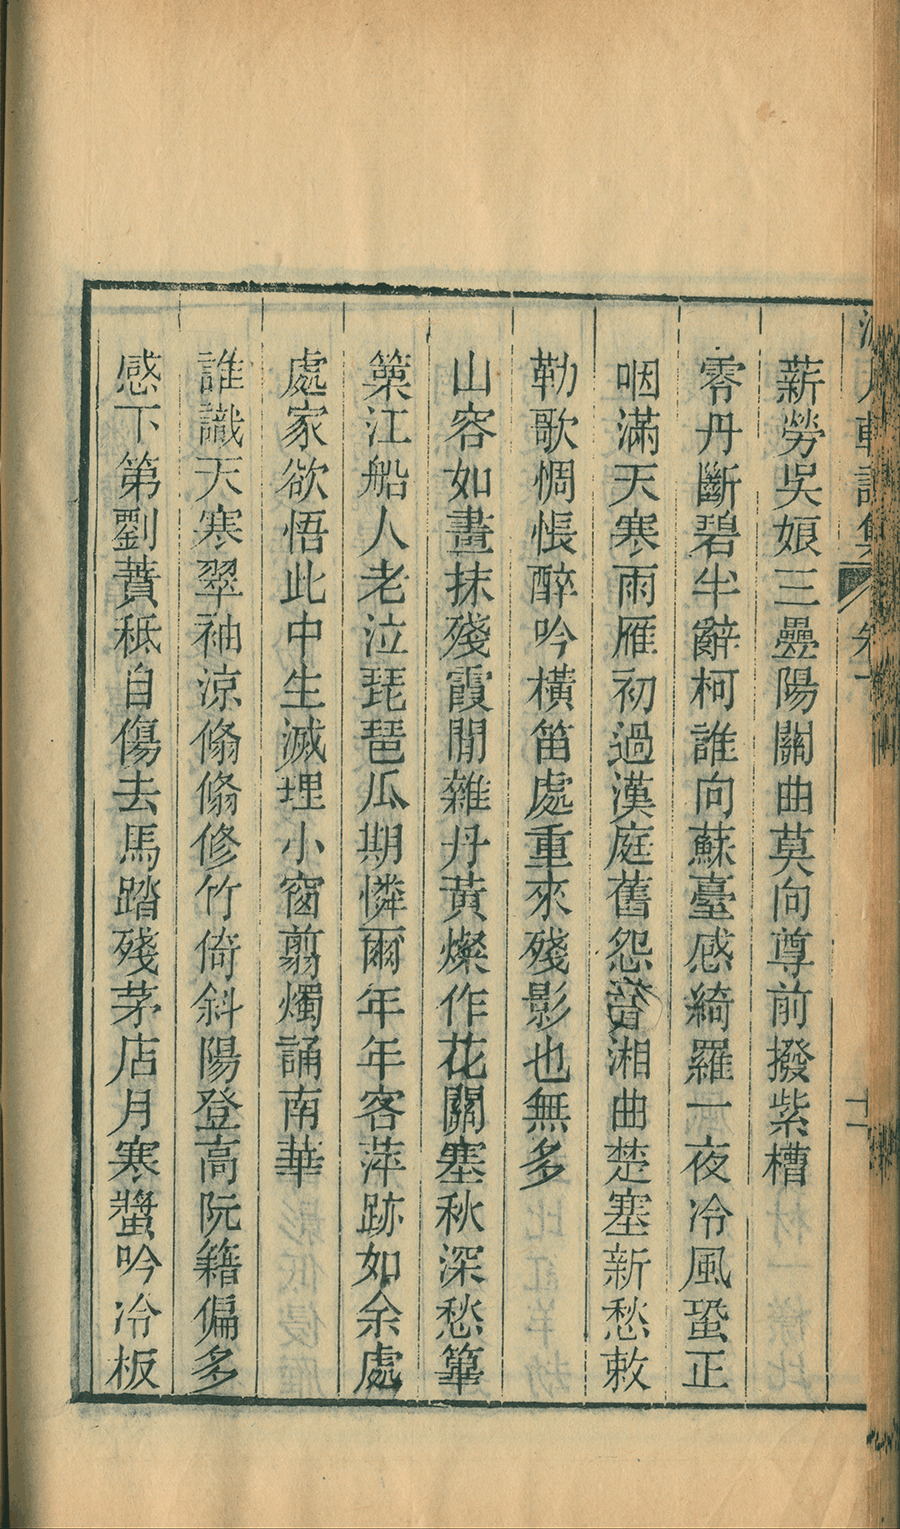 軒詩集 卷一 十一
薪勞吳娘三疊陽關曲莫向尊前撥紫槽
零丹斷碧半辭柯誰向蘇臺感綺羅一夜冷風蛩正
咽滿天寒雨雁初過漢庭舊怨湘曲楚塞新愁敕
勒歌惆悵醉吟橫笛處重來殘影也無多
山容如畫抹殘霞閒雜丹黃燦作花關塞秋深愁篳
篥江船人老泣琵琶瓜期憐爾年年客萍跡如余處
處家欲悟此中生滅理小窗翦燭誦南華
誰識天寒翠袖涼翛翛修竹倚斜陽登高阮籍偏多
感下第劉蕡秪自傷去馬踏殘茅店月寒螿吟冷板